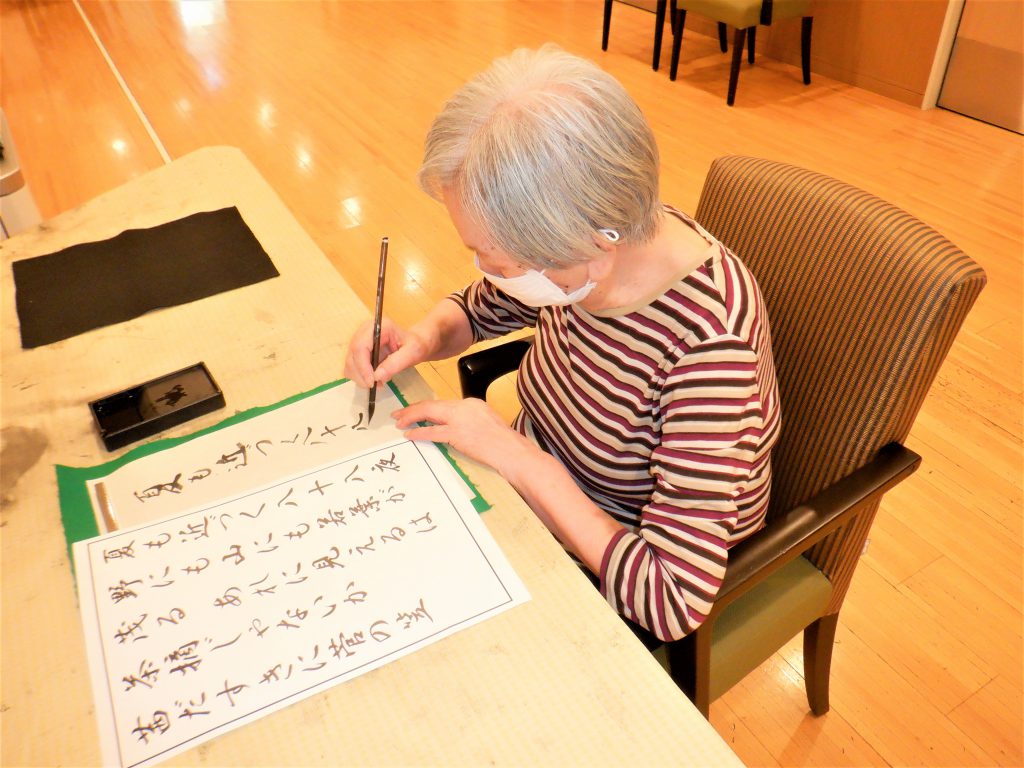 夏も近づく八十八
夏も近づく八十八夜
野にも山にも若葉が
茂る あれに見えるは
茶摘じゃないか
茜だすきに菅の笠